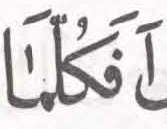 اَفَكُلَّمَا